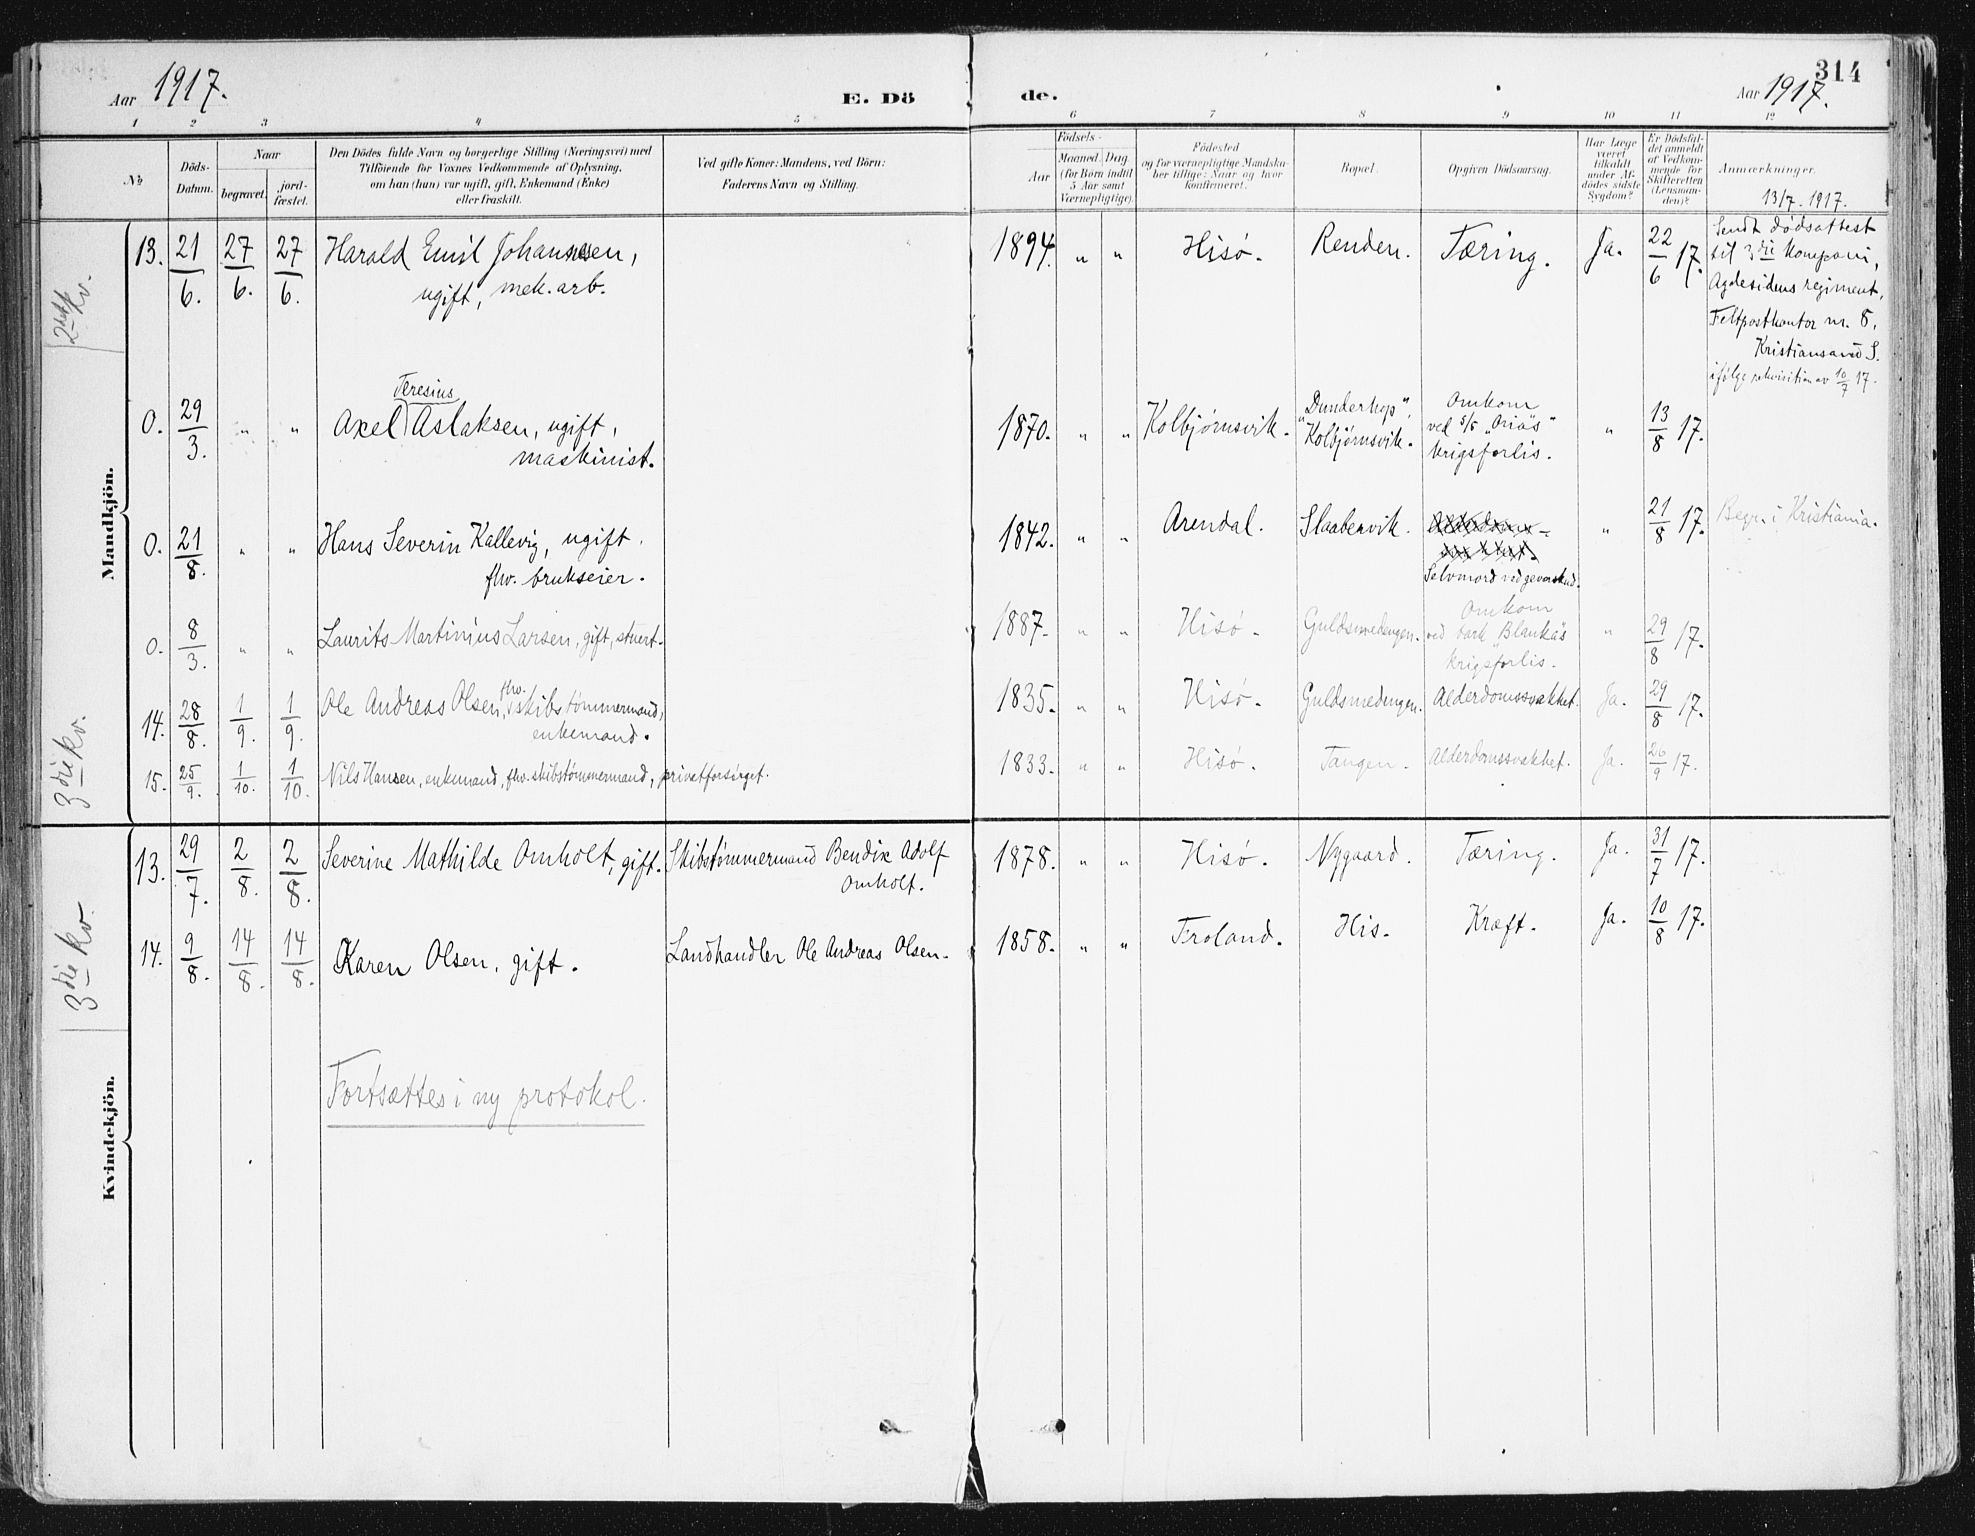 Aar 1917.
E. Döde.
314
Aar 1917.
1 2 3 4 5 6 7 8 9 10 11 12
No
Döds-Datum.
Naar
begravet.
jord-fæstet.
Den Dödes fulde Navn og borgerlige Stilling (Næringsvei) med
Tilföiende for Voxnes Vedkommende af Oplysning,
om han (hun) var ugift, gift, Enkemand (Enke)
eller fraskilt.
Ved gifte Koner: Mandens, ved Börn:
Faderens Navn og Stilling.
Födsels-
Aar
Maaned. Dag.
(for Børn indtil
5 Aar samt
Værnepligtige).
Födested
og for værnepligtige Mandska-
ber tillige: Naar og hvor
konfirmeret.
Bopæl.
Opgiven Dödsaarsag.
Har Læge
været
tilkaldt
under Af-
dödes sidste
Sygdom?
Er Dödsfal-
det anmeldt
af Vedkom-
mende for
Skifteretten
(Lensman-
den)?
Anmærkninger.
2det kv.
Mandkjön.
13. 21/6. 27/6. 27/6. Harald Emil Johannesen,
ugift, mek. arb.
1894. „ „ Hisö. Renden. Tæring. Ja. 22/6 17.
13/7. 1917.
Sendt dödsattest
til 3die Kompani,
Agdesidens regiment,
Feltpostkontor nr. 8,
Kristiansand S.
ifölge rekvisition av 10/7 17.
0. 29/3. „ „ Axel Teresius Aslaksen, ugift,
maskinist.
1870. „ „ Kolbjørnsvik. "Dunderhop",
Kolbjørnsvik.
Omkom
ved s/s "Oriäs"
krigsforlis.
„ 13/8 17.
0. 21/8. „ „ Hans Severin Kallevig, ugift.
fhv. brukseier.
1842. „ „ Arendal. Slaabervik.
Selvmord ved geværskud.
„ 21/8 17. Begr. i Kristiania.
0. 8/3. „ „ Laurits Martinius Larsen, gift, stuert.
1887. „ „ Hisö. Guldsmedengen.
Omkom
ved bark "Blenkäs"
krigsforlis.
„ 29/8 17.
3die kv.
14. 28/8. 1/9. 1/9. Ole Andreas Olsen, fhv. skibstömmermand,
enkemand.
1835. „ „ Hisö. Guldsmedengen. Alderdomssvakhet. Ja. 29/8 17.
15. 25/9. 1/10. 1/10. Nils Hansen, enkemand, fhv. skibstömmermand, privatforsörget.
1833. „ „ Hisö. Tangen. Alderdomssvakhet. Ja. 26/9 17.
3die kv.
Kvindekjön.
13. 29/7. 2/8. 2/8. Severine Mathilde Omholt, gift. Skibstömmermand Bendix Adolf
Omholt.
1878. „ „ Hisö. Nygaard. Tæring. Ja. 31/7 17.
14. 9/8. 14/8. 14/8. Karen Olsen, gift. Landhandler Ole Andreas Olsen.
1858. „ „ Froland. His. Kræft. Ja. 10/8 17.
Fortsættes i ny protokol.